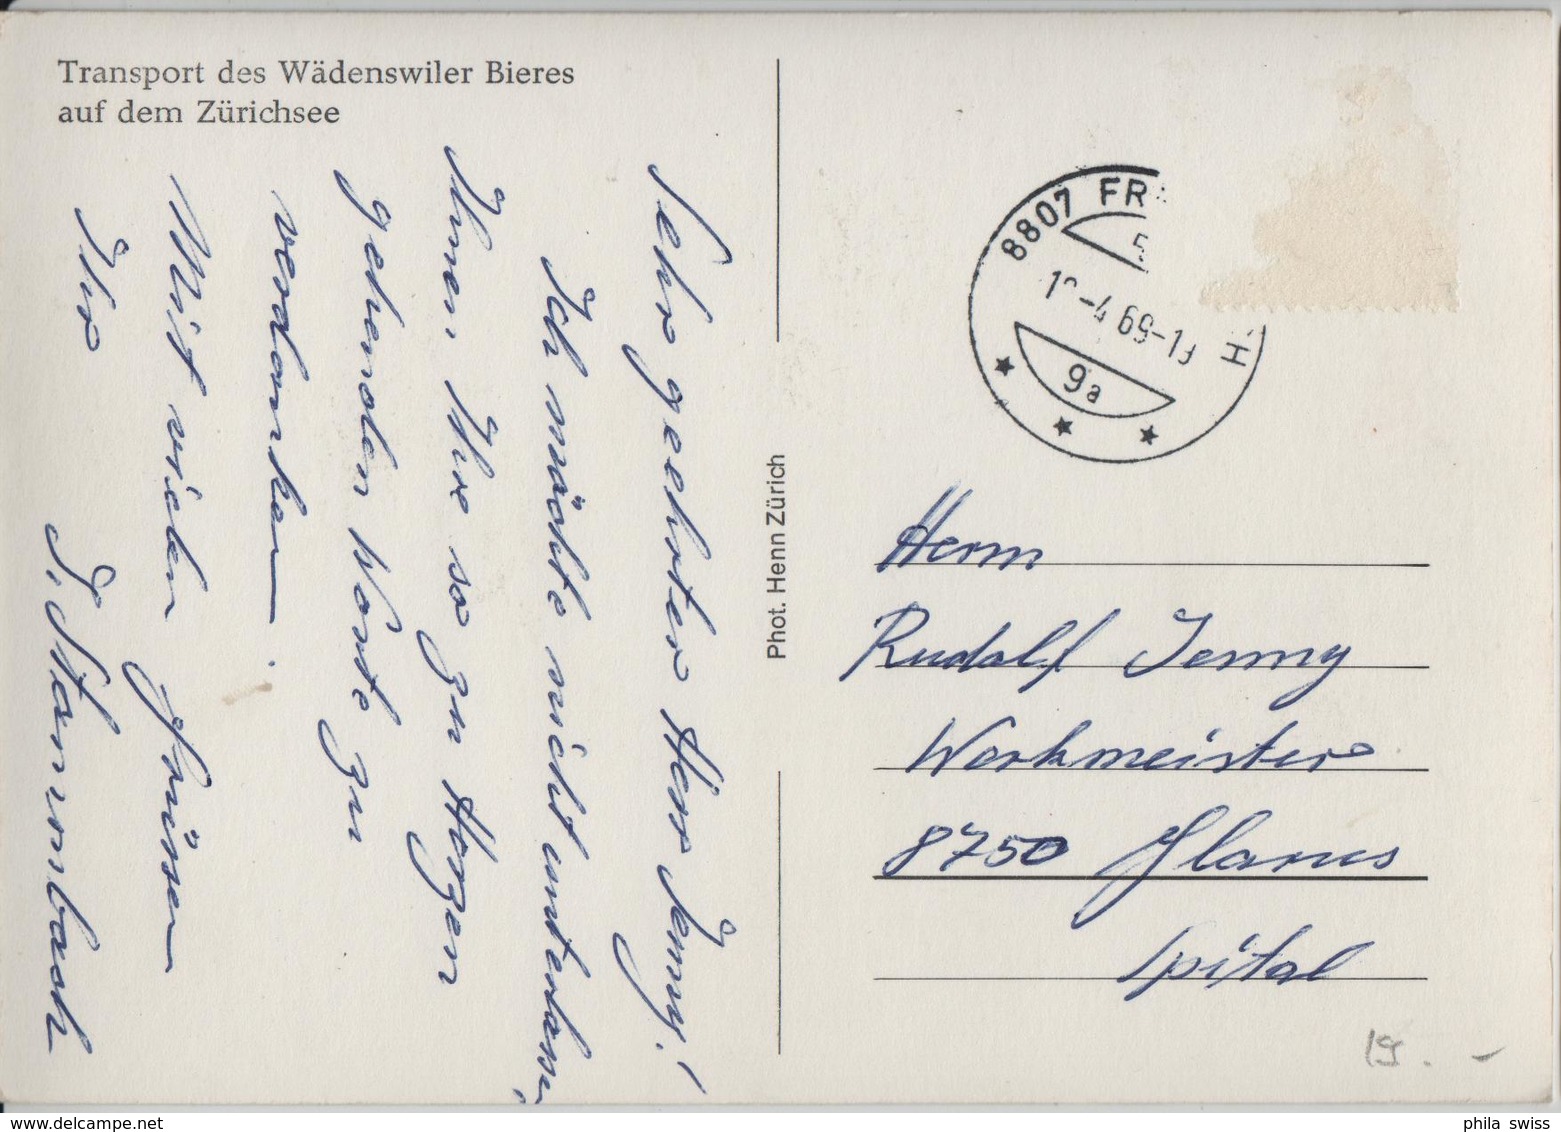 Transport des Wädenswiler Bieres
auf dem Zürichsee
Sehr geehrter Herr Jenny!
Ich möchte nicht unterlassen,
Ihnen Ihre so zu Herzen
gehenden Worte zu
verdanken.
Mit vielen Grüssen
Ihr
J. Stammbach
Phot. Henn Zürich
8807 FR
4 69-
9a
H
Herrn
Rudolf Jenny
Werkmeister
8750 Glarus
Spital
19.-
phila swiss